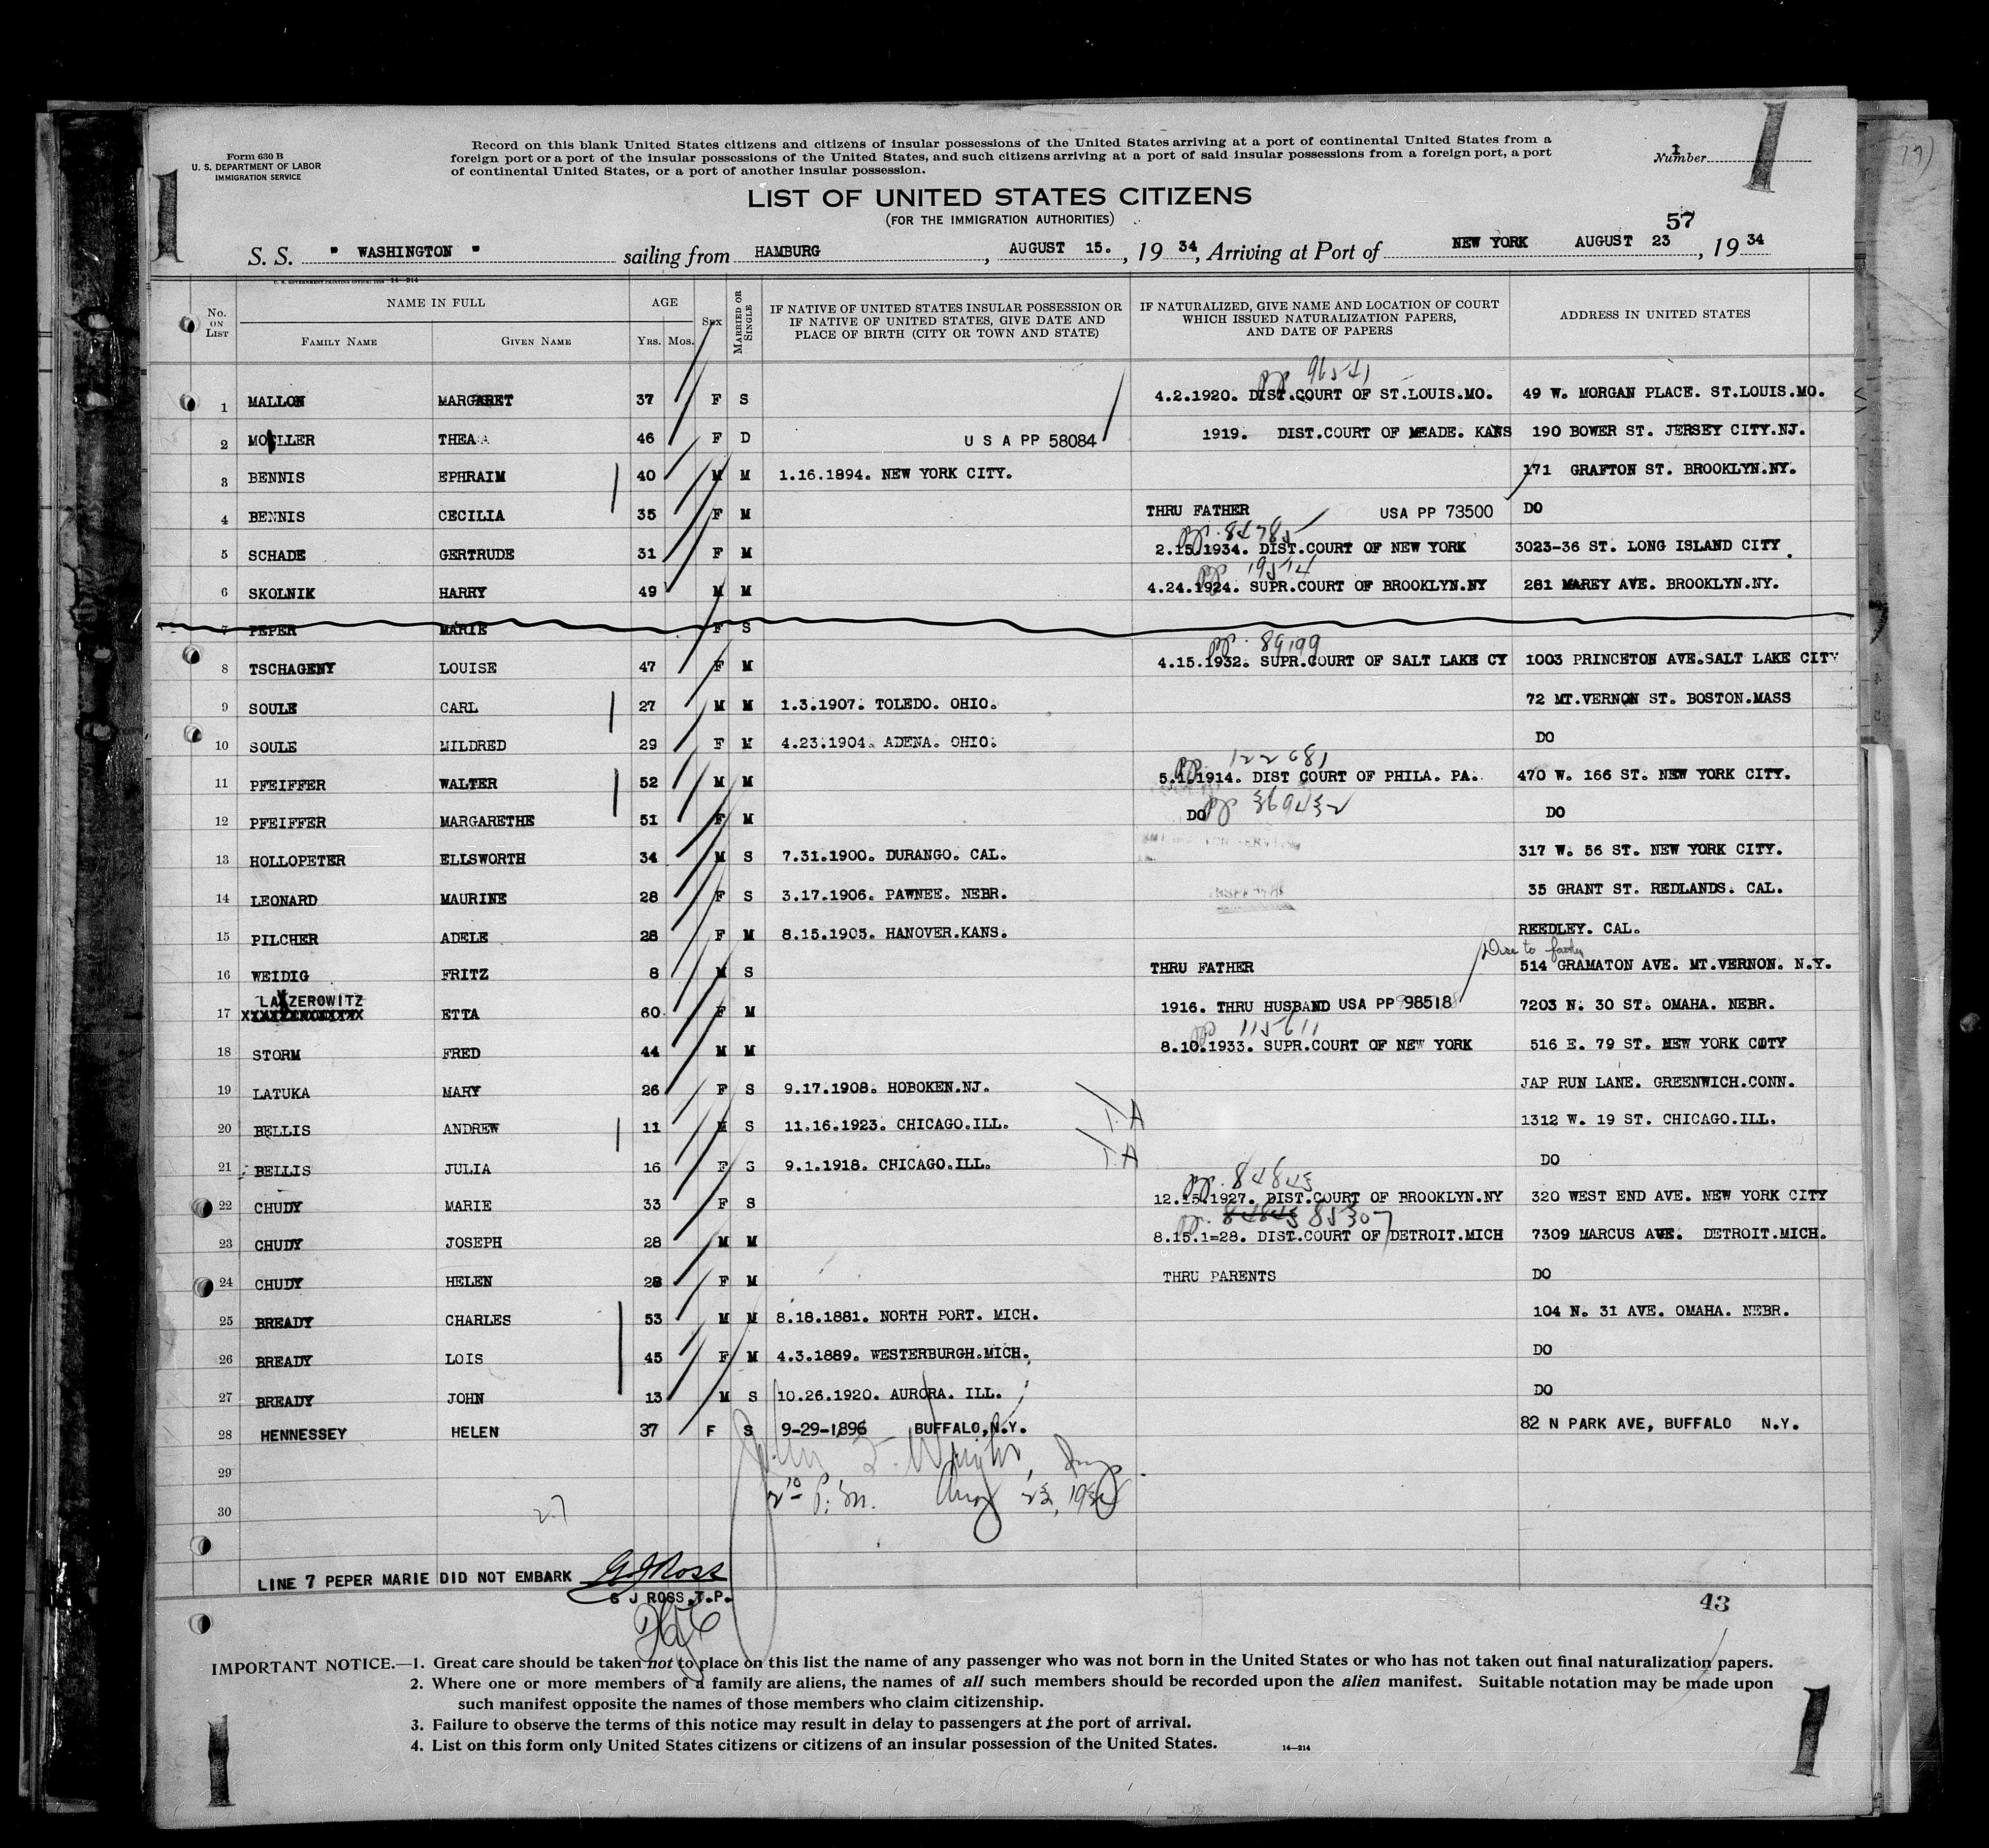 Form 630 B
U. S. DEPARTMENT OF LABOR
IMMIGRATION SERVICE
Record on this blank United States citizens and citizens of insular possessions of the United States arriving at a port of continental United States from a
foreign port or a port of the insular possessions of the United States, and such citizens arriving at a port of said insular possessions from a foreign port, a port
of continental United States, or a port of another insular possession.
Number 1
LIST OF UNITED STATES CITIZENS
(FOR THE IMMIGRATION AUTHORITIES)
57
S. S. " WASHINGTON " sailing from HAMBURG, AUGUST 15., 1934, Arriving at Port of NEW YORK AUGUST 23, 1934
U. S. GOVERNMENT PRINTING OFFICE: 14—214
No. ON LIST
NAME IN FULL
FAMILY NAME
GIVEN NAME
AGE
YRS.
MOS.
SEX
MARRIED OR SINGLE
IF NATIVE OF UNITED STATES INSULAR POSSESSION OR
IF NATIVE OF UNITED STATES, GIVE DATE AND
PLACE OF BIRTH (CITY OR TOWN AND STATE)
IF NATURALIZED, GIVE NAME AND LOCATION OF COURT
WHICH ISSUED NATURALIZATION PAPERS,
AND DATE OF PAPERS
ADDRESS IN UNITED STATES
pp 96541
1 MALLON MARGARET 37 F S 4.2.1920. DIST.COURT OF ST.LOUIS.MO. 49 W. MORGAN PLACE. ST.LOUIS.MO.
2 MOELLER THEA 46 F D U S A PP 58084 1919. DIST.COURT OF MEADE. KANS 190 BOWER ST. JERSEY CITY.NJ.
3 BENNIS EPHRAIM 40 M M 1.16.1894. NEW YORK CITY. 171 GRAFTON ST. BROOKLYN.NY.
4 BENNIS CECILIA 35 F M THRU FATHER USA PP 73500 DO
pp. 84785
5 SCHADE GERTRUDE 31 F M 2.15.1934. DIST.COURT OF NEW YORK 3023-36 ST. LONG ISLAND CITY.
pp 19514
6 SKOLNIK HARRY 49 M M 4.24.1924. SUPR.COURT OF BROOKLYN.NY 281 MAREY AVE. BROOKLYN.NY.
7 PEPER MARIE F S
pp. 89199
8 TSCHAGENY LOUISE 47 F M 4.15.1932. SUPR.COURT OF SALT LAKE CY 1003 PRINCETON AVE.SALT LAKE CITY
9 SOULE CARL 27 M M 1.3.1907. TOLEDO. OHIO. 72 MT.VERNON ST. BOSTON.MASS
10 SOULE MILDRED 29 F M 4.23.1904. ADENA. OHIO. DO
pp. 122681
11 PFEIFFER WALTER 52 M M 5.1.1914. DIST COURT OF PHILA. PA. 470 W. 166 ST. NEW YORK CITY.
12 PFEIFFER MARGARETHE 51 F M DO pp 369432 DO
13 HOLLOPETER ELLSWORTH 34 M S 7.31.1900. DURANGO. CAL. 317 W. 56 ST. NEW YORK CITY.
14 LEONARD MAURINE 28 F S 3.17.1906. PAWNEE. NEBR. 35 GRANT ST. REDLANDS. CAL.
15 PILCHER ADELE 28 F M 8.15.1905. HANOVER.KANS. REEDLEY. CAL.
to father
16 WEIDIG FRITZ 8 M S THRU FATHER 514 GRAMATON AVE. MT.VERNON. N.Y.
LAZEROWITZ
17 ETTA 60 F M 1916. THRU HUSBAND USA PP 98518 7203 N. 30 ST. OMAHA. NEBR.
pp 115611
18 STORM FRED 44 M M 8.10.1933. SUPR.COURT OF NEW YORK 516 E. 79 ST. NEW YORK CITY
19 LATUKA MARY 26 F S 9.17.1908. HOBOKEN.NJ. JAP RUN LANE. GREENWICH.CONN.
T.A
20 BELLIS ANDREW 11 M S 11.16.1923. CHICAGO.ILL. 1312 W. 19 ST. CHICAGO.ILL.
T.A
21 BELLIS JULIA 16 F S 9.1.1918. CHICAGO.ILL. DO
pp. 84843
22 CHUDY MARIE 33 F S 12.15.1927. DIST.COURT OF BROOKLYN.NY 320 WEST END AVE. NEW YORK CITY
pp. 84843 85307
23 CHUDY JOSEPH 28 M M 8.15.1=28. DIST.COURT OF DETROIT.MICH 7309 MARCUS AVE. DETROIT.MICH.
24 CHUDY HELEN 28 F M THRU PARENTS DO
25 BREADY CHARLES 53 M M 8.18.1881. NORTH PORT. MICH. 104 N. 31 AVE. OMAHA. NEBR.
26 BREADY LOIS 45 F M 4.3.1889. WESTERBURGH.MICH. DO
27 BREADY JOHN 13 M S 10.26.1920. AURORA. ILL. DO
28 HENNESSEY HELEN 37 F S 9-29-1896 BUFFALO,N.Y. 82 N PARK AVE, BUFFALO N.Y.
29
2 10 P.M. Aug 23, 1934
30
27
LINE 7 PEPER MARIE DID NOT EMBARK G J Ross
G J ROSS,T.P.
43
IMPORTANT NOTICE.—1. Great care should be taken not to place on this list the name of any passenger who was not born in the United States or who has not taken out final naturalization papers.
2. Where one or more members of a family are aliens, the names of all such members should be recorded upon the alien manifest. Suitable notation may be made upon
such manifest opposite the names of those members who claim citizenship.
3. Failure to observe the terms of this notice may result in delay to passengers at the port of arrival.
4. List on this form only United States citizens or citizens of an insular possession of the United States.
14—214